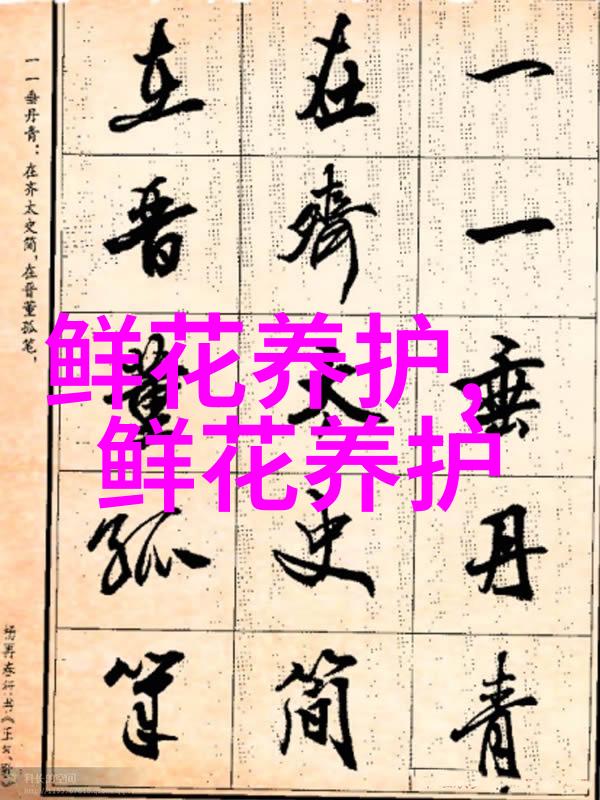 一一垂丹青
在齐太史简
在晋董狐笔
一一垂丹青：在齐太史简，在晋董狐笔，
鲜花养护，
鲜花养护
科长的空间